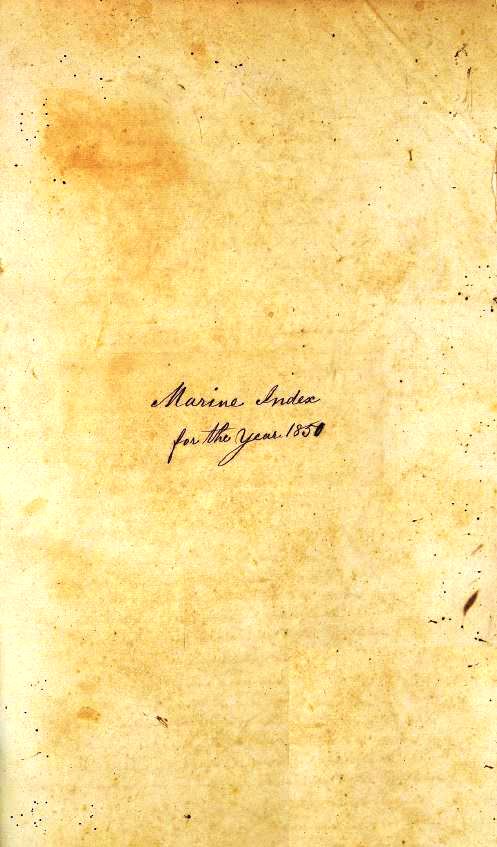 Marine Index
for the Year 1850